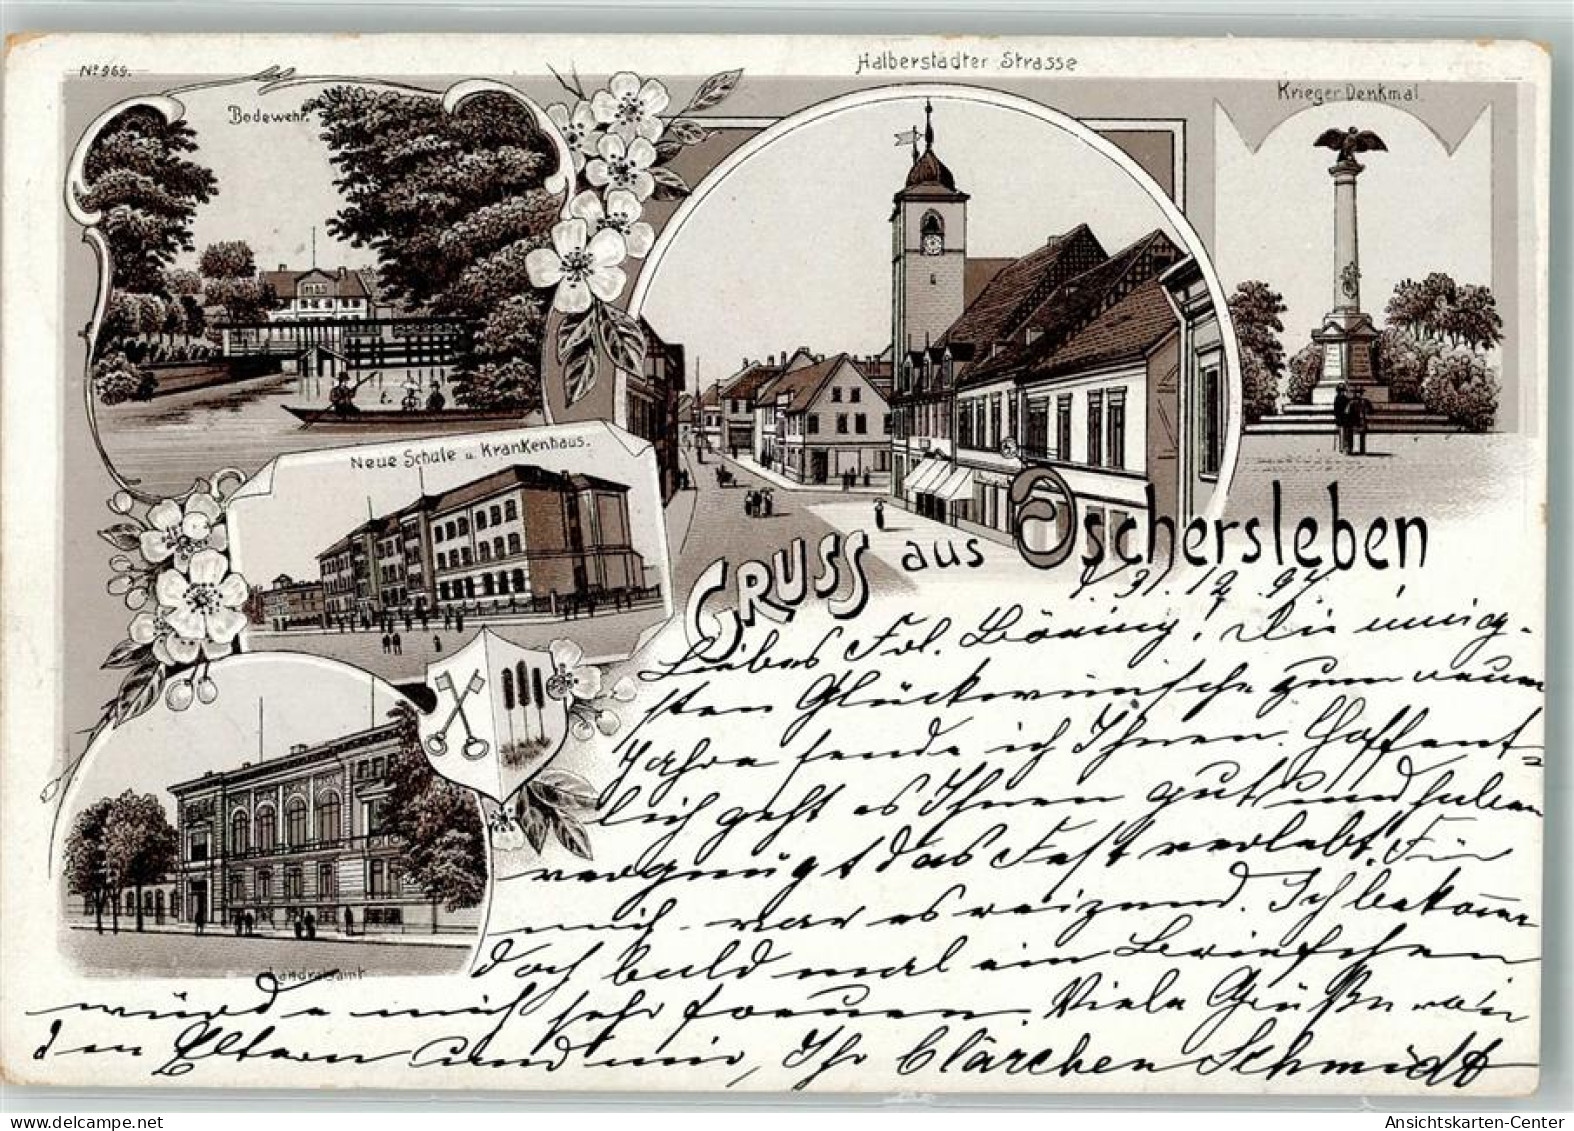 Nº 969.
Bodewehr.
Halberstädter Strasse
Krieger Denkmal.
Neue Schule u. Krankenhaus.
Landratsamt
Gruss aus Oschersleben
31. 12. 97
Liebes Frl. Böring! Die innig-
sten Glückwünsche zum neuen
Jahre sende ich Ihnen. Hoffent-
lich geht es Ihnen gut und haben
vergnügt das Fest verlebt. Für
mich war es reizend. Ich bekäme
doch bald mal ein Briefchen
würde mich sehr freuen. Viele Grüße
den Eltern und mir, Ihr Clärchen Schmidt
www.delcampe.net
Ansichtskarten-Center